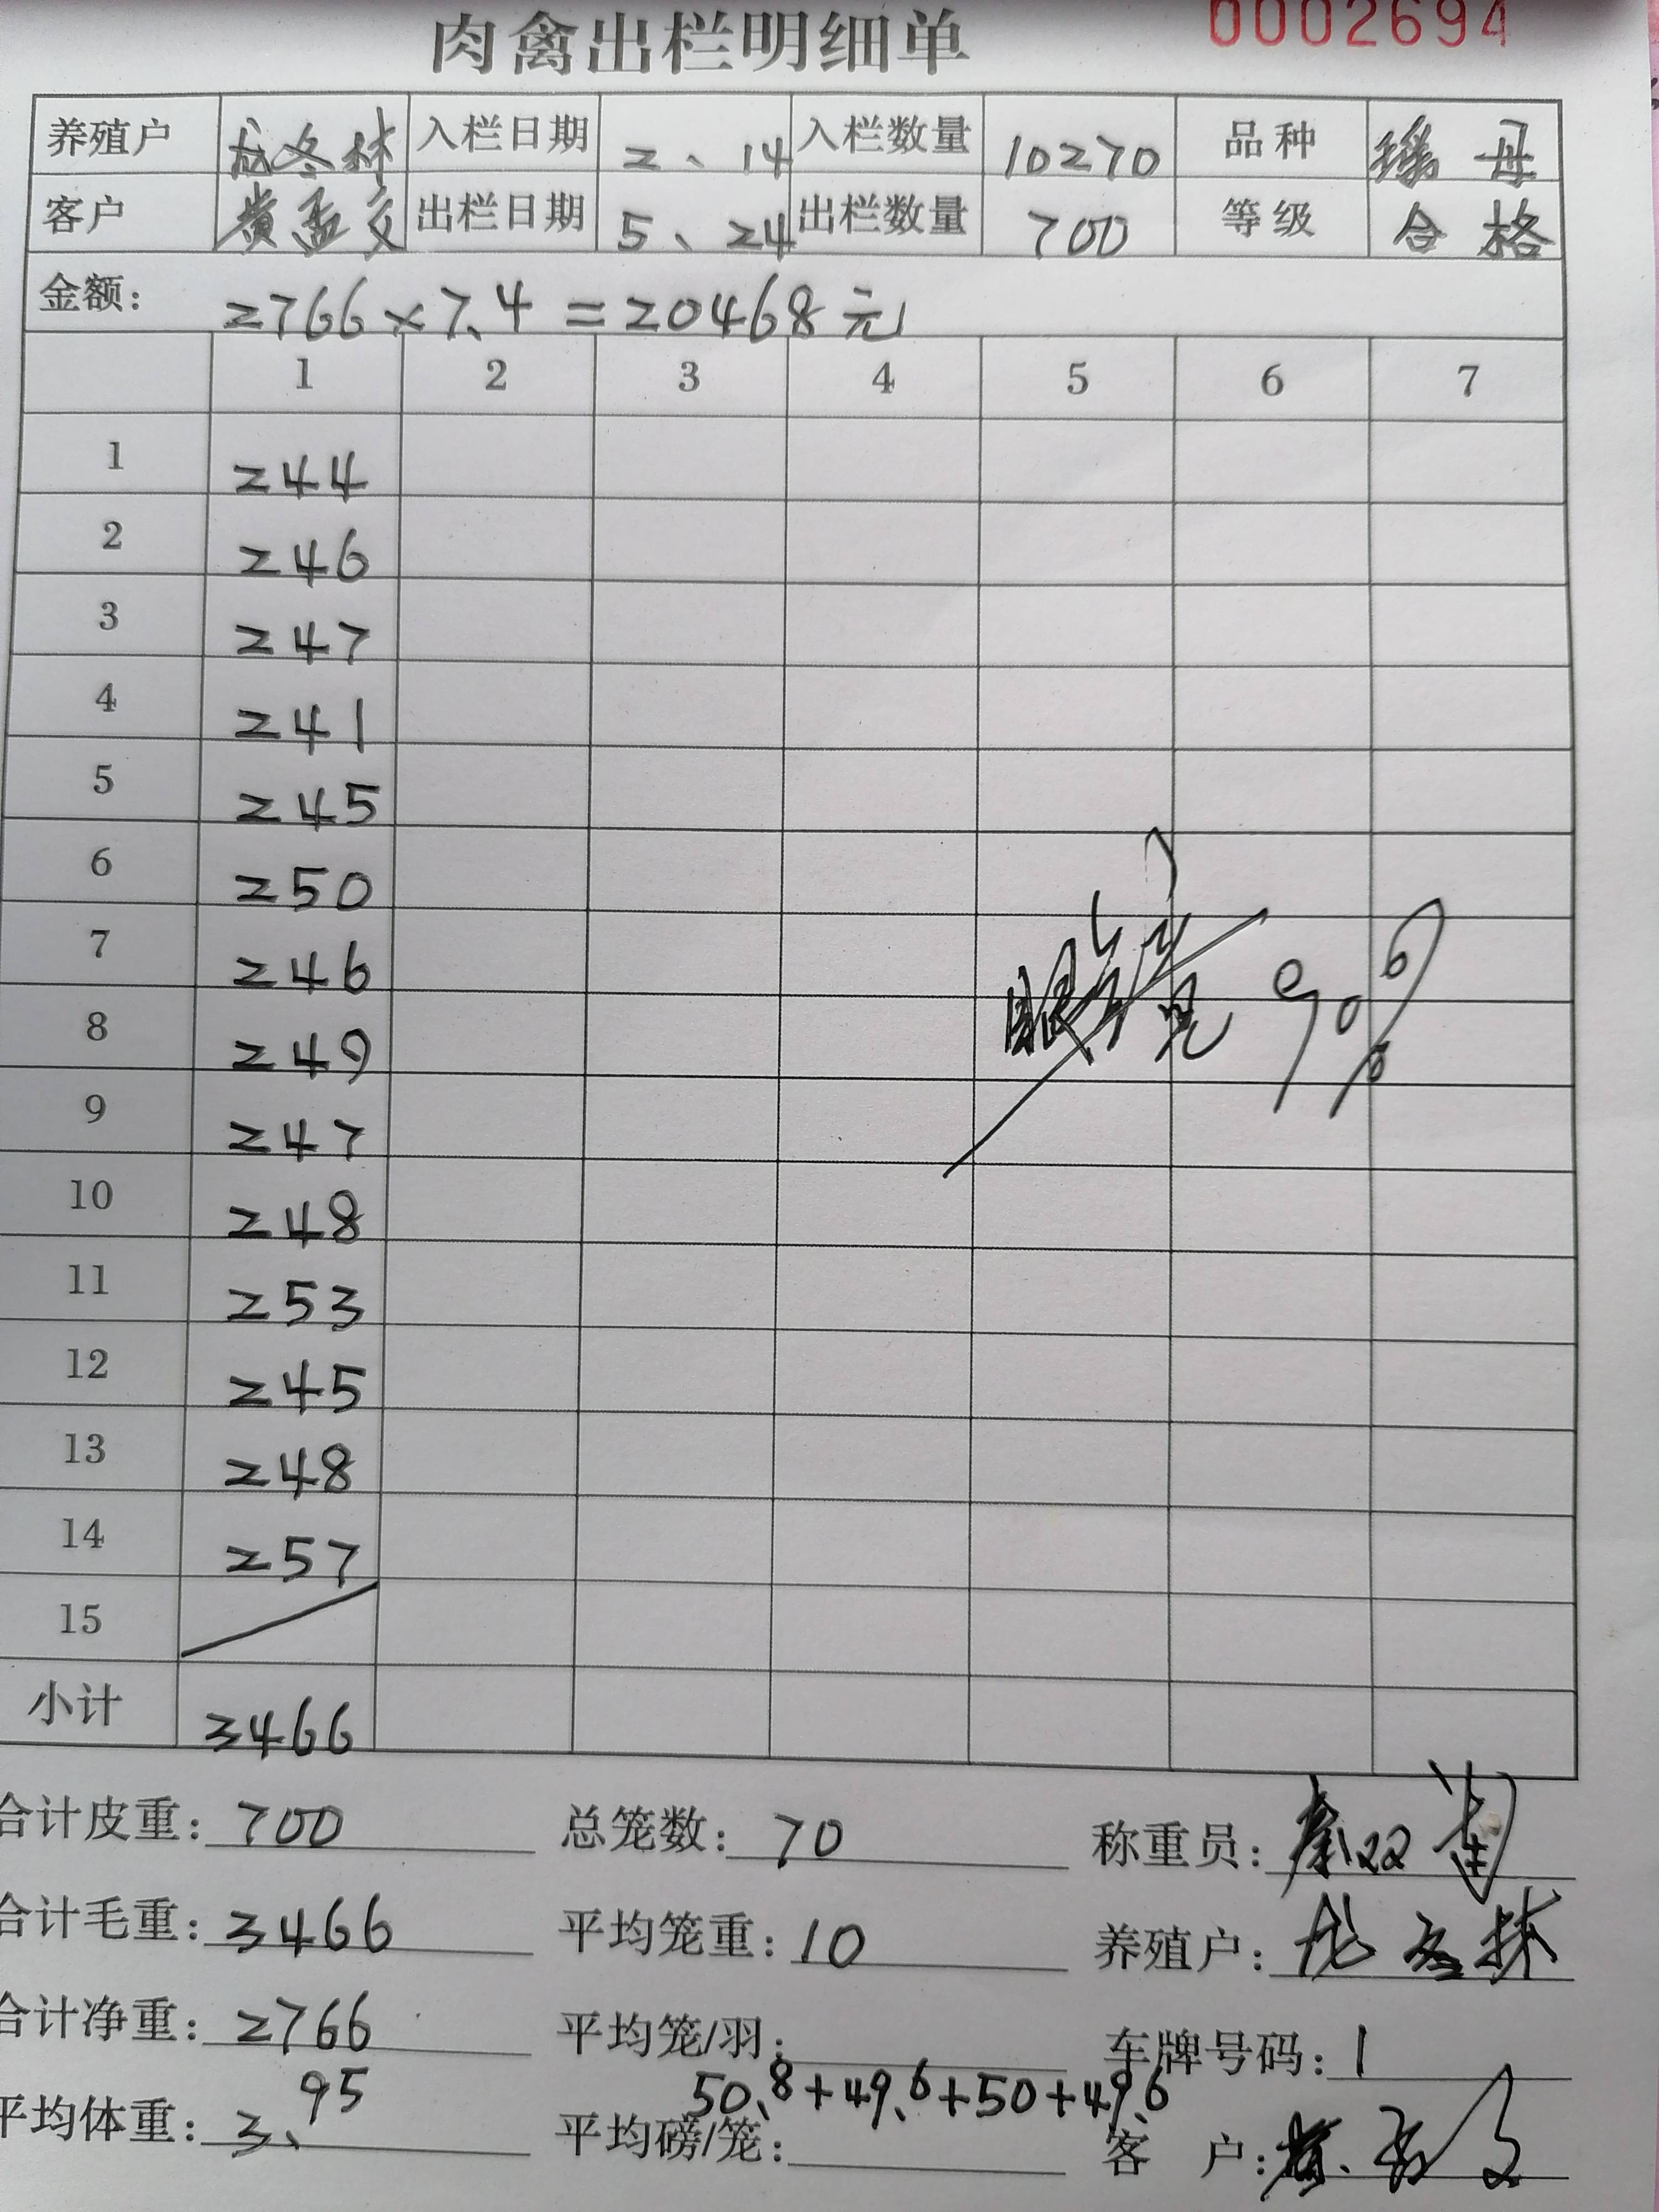 肉禽出栏明细单 0002694
养殖户 龙冬林 入栏日期 2、14 入栏数量 10270 品种 瑶母
客户 黄孟文 出栏日期 5、24 出栏数量 700 等级 合格
金额: 2766×7.4=20468元
1 2 3 4 5 6 7
1 244
2 246
3 247
4 241
5 245
6 250
7 246
8 249
9 247
10 248
11 253
12 245
13 248
14 257
15
小计 3466
90%
合计皮重: 700 总笼数: 70 称重员:
合计毛重: 3466 平均笼重: 10 养殖户: 龙冬林
合计净重: 2766 平均笼/羽: 车牌号码: 1
50.8+49.6+50+49.6
平均体重: 3.95 平均磅/笼: 客户: